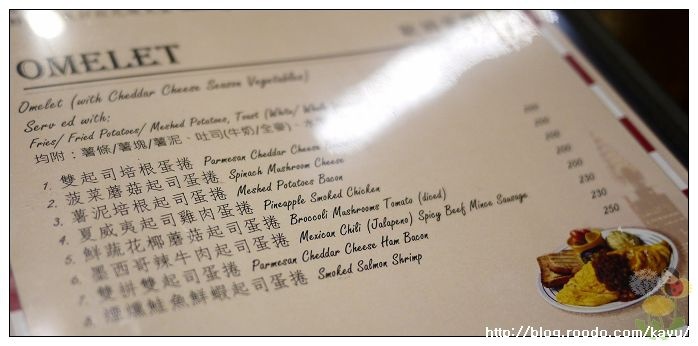 OMELET
Omelet (with Cheddar Cheese Season Vegetables)
Serv ed with:
Fries/ Fried Potatoes/ Meshed Potatoes, Toast (White/
均附：薯條/薯塊/薯泥、吐司(牛奶/全麥)、水
1. 雙起司培根蛋捲 Parmesan Cheddar Cheese
2. 菠菜蘑菇起司蛋捲 Spinach Mushroom Cheese 200
3. 薯泥培根起司蛋捲 Meshed Potatoes Bacon 200
4. 夏威夷起司雞肉蛋捲 Pineapple Smoked Chicken 200
5. 鮮蔬花椰蘑菇起司蛋捲 Broccoli Mushrooms Tomato (diced) 200
6. 墨西哥辣牛肉起司蛋捲 Mexican Chili (Jalapeno) Spicy Beef Mince Sausage 230
7. 雙拼雙起司蛋捲 Parmesan Cheddar Cheese Ham Bacon 230
8. 煙燻鮭魚鮮蝦起司蛋捲 Smoked Salmon Shrimp 250
http://blog.roodo.com/kavu/